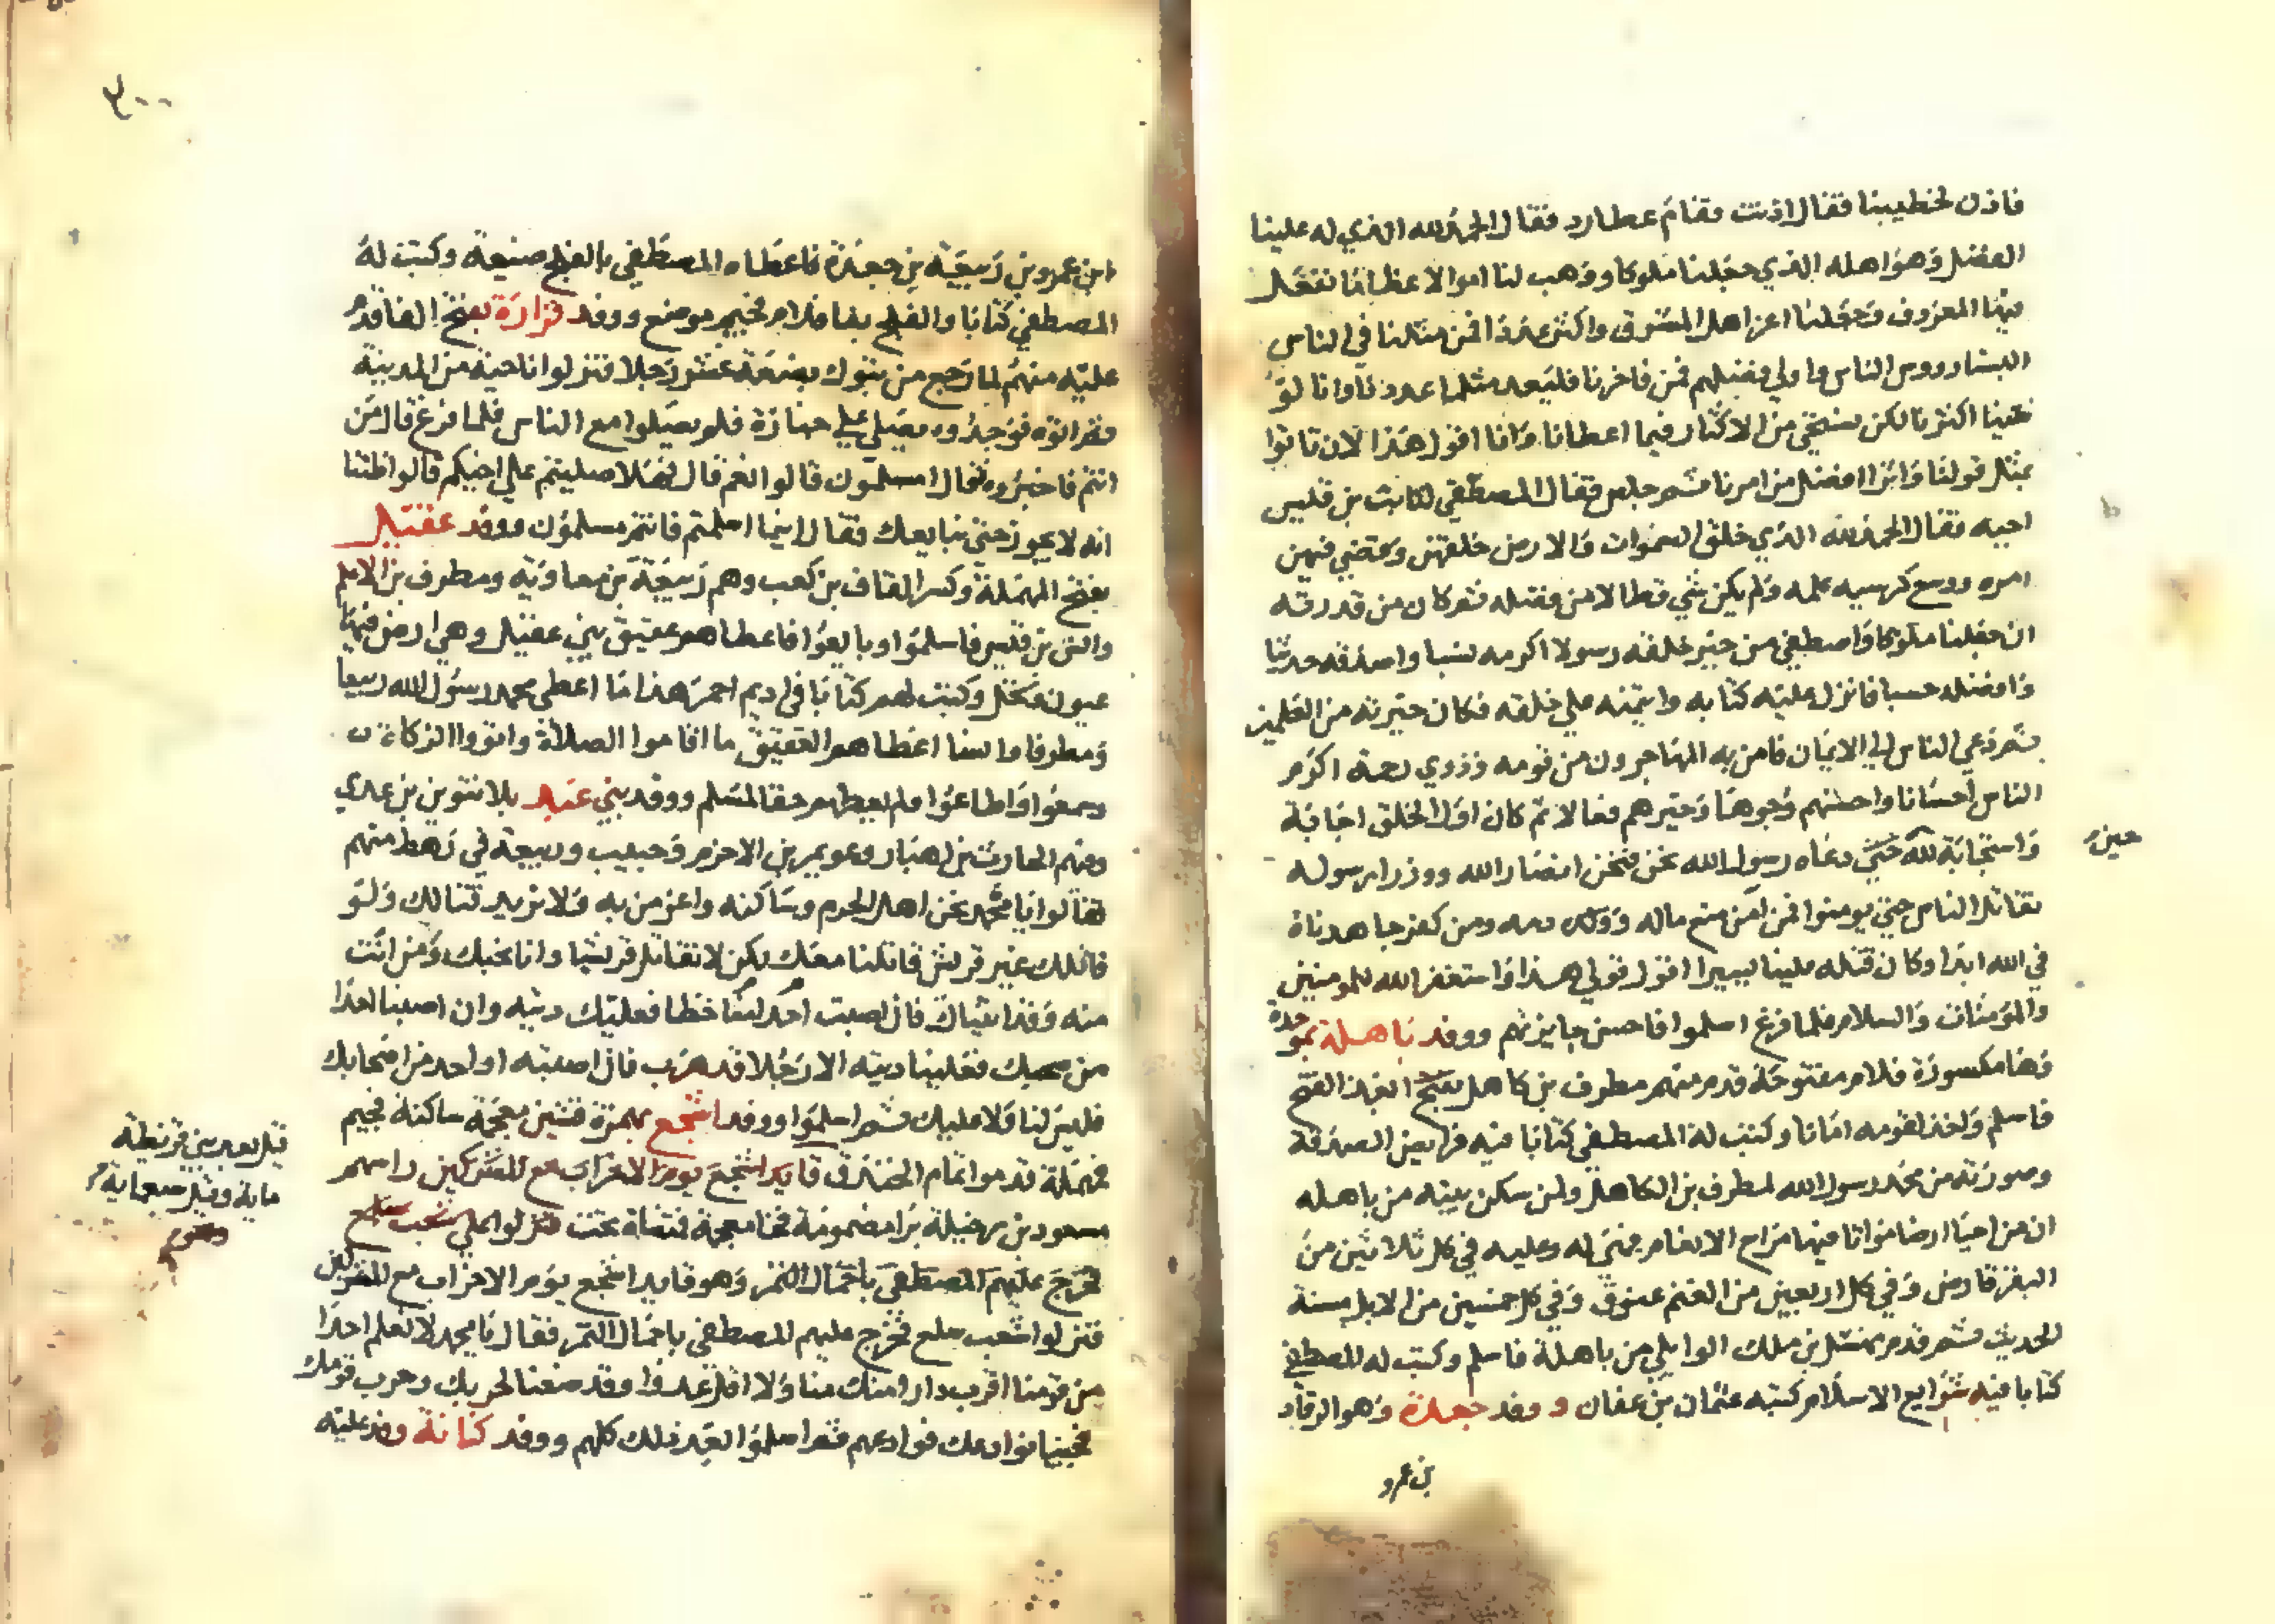 فاذن لخطيبنا فقال اذنت فقام عطارد فقال الحمد لله الذي له علينا
الفضل وهو اهله الذي جعلنا ملوكا ووهب لنا اموالا عظاما نفعل
فيها المعروف وجعلنا اعز اهل المشرق واكثر عددا فمن مثلنا في الناس
السنا رووس الناس واولي فضلهم فمن فاخرنا فليعد مثل ما عددنا وانا لو
شينا اكثرنا لكن نستحي من الاكثار فيما اعطانا وانا اقول هذا لان تاتوا
بمثل قولنا وامرا افضل من امرنا ثم جلس فقال المصطفى لثابت بن قيس
اجبه فقال الحمد لله الذي خلق السموات والارض خلقهن وقضى فيهن
امره ووسع كرسيه علمه ولم يكن شي قط الا من فضله ثم كان من قدرته
ان جعلنا ملوكا واصطفى من خير خلقه رسولا اكرمه نسبا واصدقه حديثا
وافضله حسبا فانزل عليه كتابه وايتمنه على خلقه فكان خيرته من العلمين
ثم دعي الناس الى الايمان فامن به المهاجرون من قومه وذوي رحمه اكرم
الناس احسانا واحسنهم وجوها وخيرهم فعالا ثم كان اول الخلق اجابة
واستجابة لله حين دعاه رسول الله نحن فنحن انصار الله ووزرا رسوله
حين
نقاتل الناس حتى يومنوا فمن امن منع ماله ودمه ومن كفر جاهدناه
في الله ابدا وكان قتله علينا يسيرا اقول قولي هذا واستغفر الله للمومنين
والمؤمنات والسلام فلما فرغ اسلموا فاحسن جايزتهم ووفد باهلة بموحدة
وها مكسورة فلام مفتوحة قدم منهم مطرف بن كاهل بعد الفتح
فاسلم واخذ لقومه امانا وكتب له المصطفى كتابا فيه فرايض الصدقة
وصورته من محمد رسول الله لمطرف بن الكاهل ولمن سكن بيته من باهله
ان من احيا ارضا مواتا فيها مراح الانعام فهي له وعليه في كل ثلاثين من
البقر فارض وفي كل اربعين من الغنم عتوق وفي كل خمسين من الابل مسنة
الحديث ثم قدم نهشل بن ملك الوايلي من باهلة فاسلم وكتب له المصطفى
كتابا فيه شرايع الاسلام كتبه عثمان بن عفان و ووفد جعدة وهو الرقاد
بن عمرو
ابن عمرو بن ربيعة بن جعدة فاعطاه المصطفى بالفلج ضيعة وكتب له
المصطفى كتابا والفلج بفا فلام فجيم موضع ووفد فزارة بفتح الفا قدم
عليه منهم لما رجع من تبوك بضعة عشر رجلا فنزلوا ناحية من المدينة
فوجدوه يصلي على جنازة فلم يصلوا مع الناس فلما فرغ قال من
انتم فاخبروه فقال امسلمون قالوا نعم قال فهلا صليتم على اخيكم قالوا ظننا
انه لا يجوز حتى نبايعك فقال اينما اسلمتم فانتم مسلمون ووفد عقيل
بفتح المهملة وكسر القاف بن كعب وهم ربيعة بن معاوية ومطرف بن الاعلم
وانس بن قيس فاسلموا وبايعوا فاعطاهم عقيق بني عقيل وهي ارض فيها
عيون ونخل وكتب لهم كتابا في اديم احمر هذا ما اعطى محمد رسول الله ربيعا
ومطرفا وانسا اعطاهم العقيق ما اقاموا الصلاة واتووا الزكاة
وسمعوا واطاعوا ولم يعطهم حقا لمسلم ووفد بني عبد بلا تنوين بن عدي
ومنهم الحارث بن اهبان وعويمر بن الاخرم وحبيب وربيعة في رهط منهم
فقالوا يا محمد نحن اهل الحرم وساكنه واعز من به ولا نريد قتالك ولو
قاتلك غير قريش قاتلنا معك لكن لا نقاتل قريشا وانا نحبك ومن انت
منه وقد اتيناك فان اصبت احدا منا خطا فعليك ديته وان اصبنا احدا
من صحبك فعلينا ديته الا رجلا قد هرب فان اصبته او احد من اصحابك
فليس لنا ولا عليك ثم اسلموا ووفد اشجع بهمزة فشين معجمة ساكنة فجيم
فمهملة قدموا تمام الخندق قايد اشجع يوم الاحزاب مع المشركين راسهم
مسعود بن رخيلة برا مضمومة فخا معجمة فمثناة تحت فنزلوا على شعب سلع
فخرج عليهم المصطفى باحمال التمر وهو قايد اشجع يوم الاحزاب مع المشركين
فنزلوا شعب سلع فخرج عليهم المصطفى باحمال التمر فقال يا محمد لا نعلم احدا
من قومنا اقرب دارا منك منا ولا اقل عددا وقد ضقنا لحربك وحرب قومك
فجينا نوادعك فوادعهم ثم اسلموا بعد ذلك كلهم ووفد كنانة وفد عليه
قيل بعد بني قريظة
ماية وقيل سبعماية